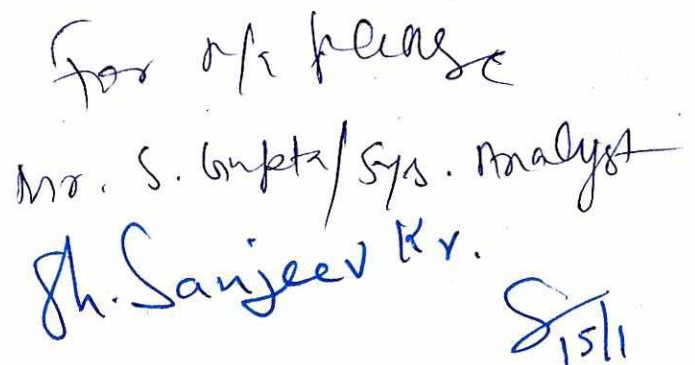 For n/a please
Mr. S. Gupta/Sys. Analyst
Sh. Sanjeev Kr.
15/1